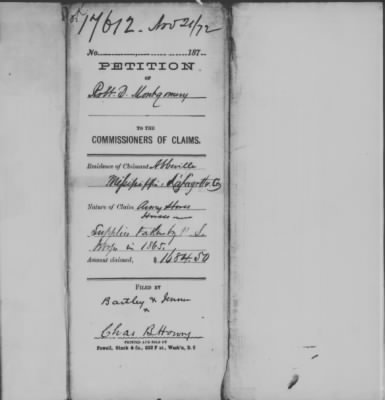 17612. Nov 21/72
No. 187
PETITION
OF
Robt. D. Montgomery
TO THE
COMMISSIONERS OF CLAIMS.
Residence of Claimant Abbeville
Mississippi. Lafayette Co
Nature of Claim Army Stores
Supplies taken by U. S.
troops in 1865.
Amount claimed, $ 1684.50
FILED BY
Bartley &
Chas B. Howry
PRINTED AND SOLD BY
Powell, Ginck & Co., 632 F st., Wash'n, D. C